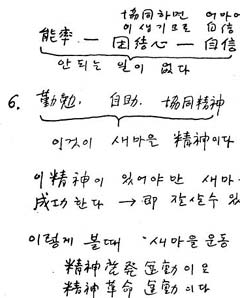 協同하면
이 생기므로 自信
能率 — 団結心 — 自信
안 되는 일이 없다
6. 勤勉, 自助, 協同精神
이것이 새마을 精神이다
이 精神이 있어야만 새마
成功한다 → 即 잘살수 있
이렇게 볼때 새마을 운동
精神啓発運動이요
精神革命運動이다